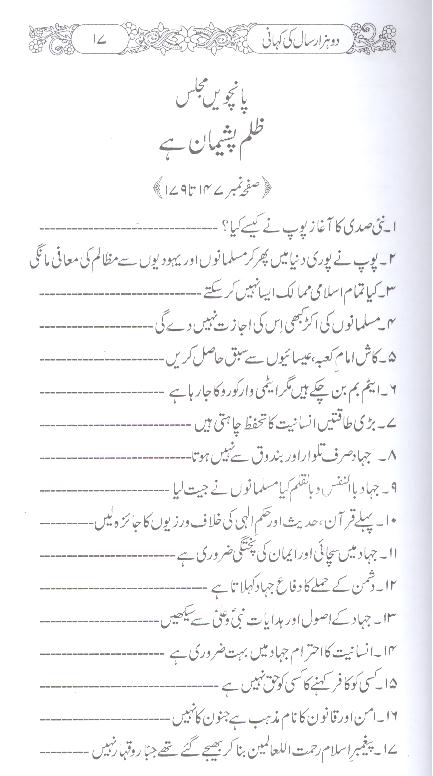 دو ہزار سال کی کہانی ۱۷
پانچویں مجلس
ظلم پشیمان ہے
﴿صفحہ نمبر ۱۴۷ تا ۱۷۹﴾
۱۔ نئی صدی کا آغاز پوپ نے کیسے کیا؟ ------------------------------
۲۔ پوپ نے پوری دنیا میں پھر کر مسلمانوں اور یہودیوں سے مظالم کی معافی مانگی
۳۔ کیا تمام اسلامی ممالک ایسا نہیں کر سکتے ------------------------------
۴۔ مسلمانوں کی اکڑ کبھی اس کی اجازت نہیں دے گی ------------------
۵۔ کاش امام کعبہ، عیسائیوں سے سبق حاصل کریں ------------------
۶۔ ایٹم بم بن چکے ہیں مگر ایٹمی وار کو روکا جا رہا ہے ------------------
۷۔ بڑی طاقتیں انسانیت کا تحفظ چاہتی ہیں ------------------------
۸۔ جہاد صرف تلوار اور بندوق سے نہیں ہوتا ------------------------
۹۔ جہاد بالنفس و بالقلم کیا مسلمانوں نے جیت لیا ------------------
۱۰۔ پہلے قرآن، حدیث اور حکم الٰہی کی خلاف ورزیوں کا جائزہ لیں ----------
۱۱۔ جہاد میں سچائی اور ایمان کی پختگی ضروری ہے ----------------------
۱۲۔ دشمن کے حملے کا دفاع جہاد کہلاتا ہے --------------------------
۱۳۔ جہاد کے اصول اور ہدایات نبیؐ و علیؑ سے سیکھیں ------------------
۱۴۔ انسانیت کا احترام جہاد میں بہت ضروری ہے ----------------------
۱۵۔ کسی کو کافر کہنے کا کسی کو حق نہیں ہے --------------------------
۱۶۔ امن اور قانون کا نام مذہب ہے جنون کا نہیں --------------------
۱۷۔ پیغمبرِ اسلام رحمت اللعالمین بنا کر بھیجے گئے تھے جبار و قہار نہیں ----------